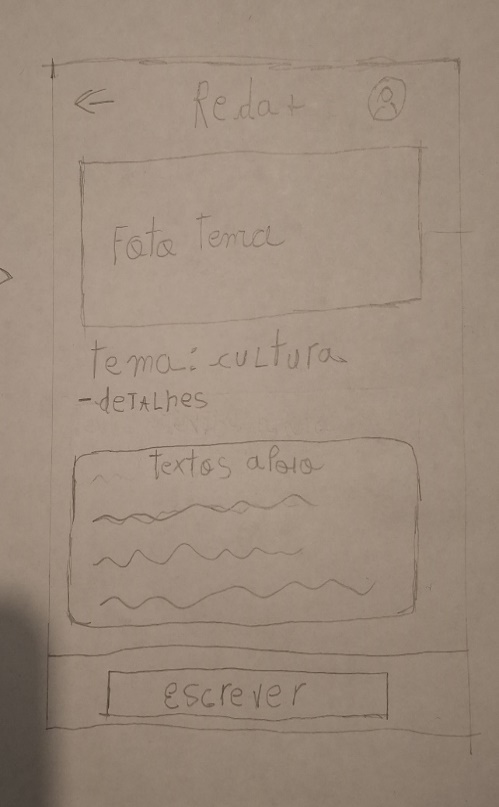 Reda+
Foto Tema
Tema: cultura
-deTALhes
textos apoio
escrever